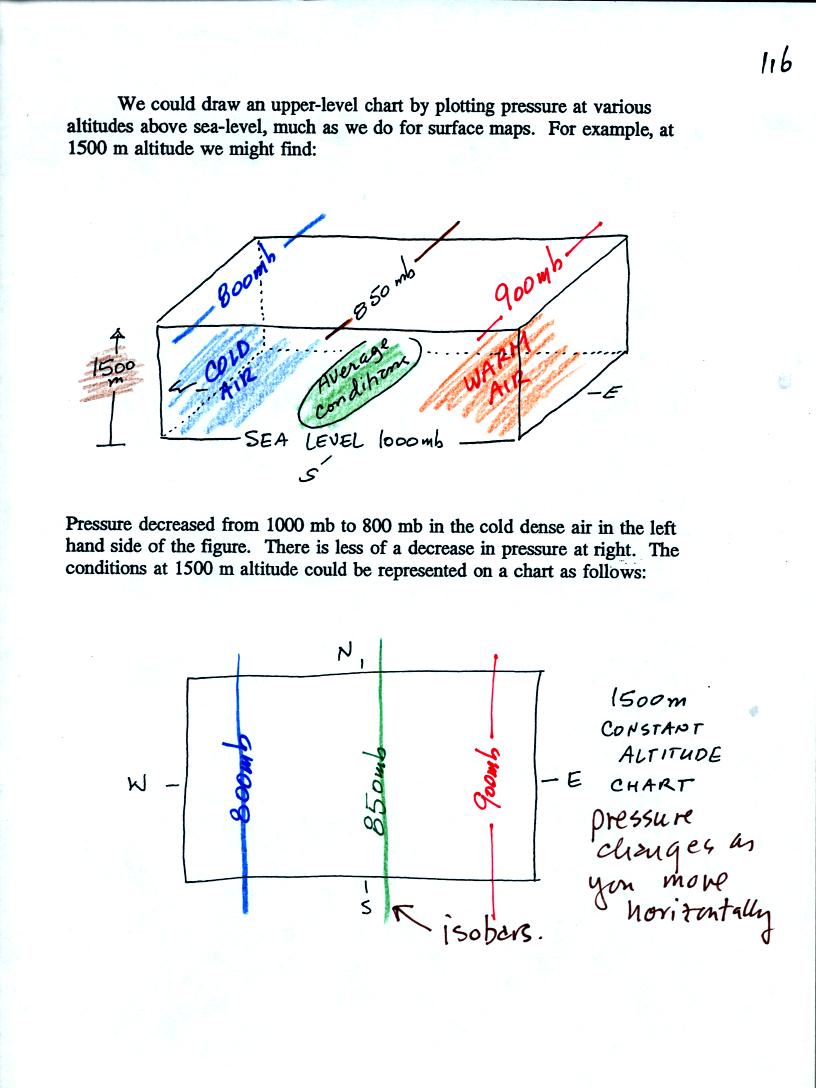 116
We could draw an upper-level chart by plotting pressure at various
altitudes above sea-level, much as we do for surface maps. For example, at
1500 m altitude we might find:
800mb
850 mb
900mb
1500
m
COLD
AIR
Average
conditions
WARM
AIR
E
SEA LEVEL 1000mb
S
Pressure decreased from 1000 mb to 800 mb in the cold dense air in the left
hand side of the figure. There is less of a decrease in pressure at right. The
conditions at 1500 m altitude could be represented on a chart as follows:
N
W
800mb
850mb
900mb
E
S
isobars.
1500m
CONSTANT
ALTITUDE
CHART
pressure
changes as
you move
horizontally